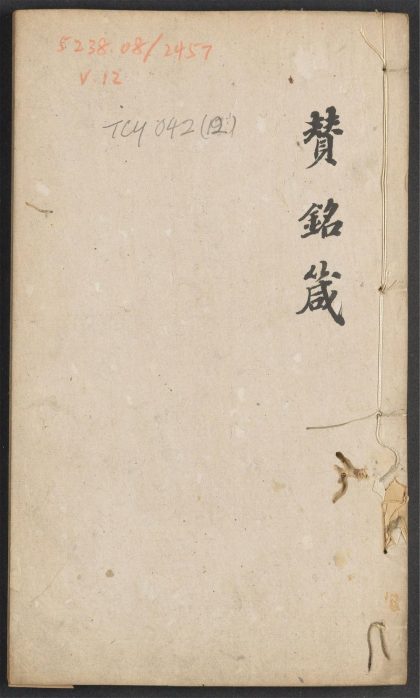 5238.08/2457
V.12
TCM 042(12)
贊銘箴